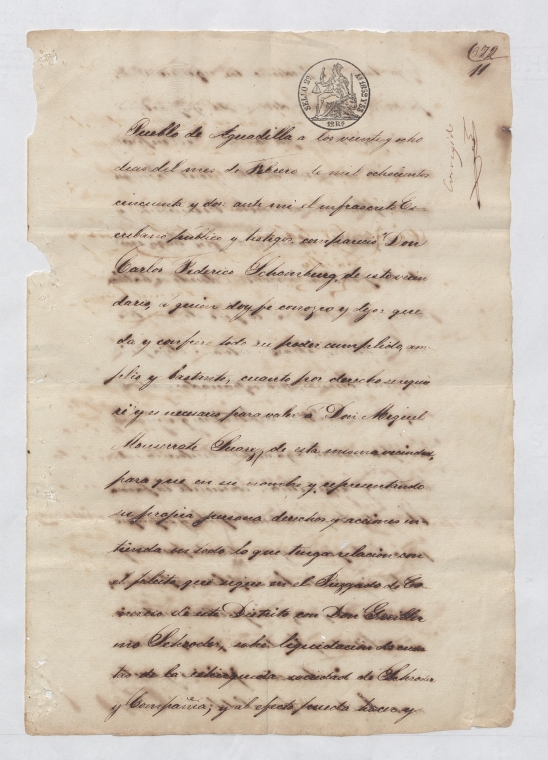 672
11
SELLO 2º
AS 1852 Y 53
12 RS
Corregido
Pueblo de Aguadilla a los veinte y ocho
dias del mes de Febrero de mil ochocientos
cincuenta y dos ante mi el infrascrito Es
cribano publico y testigos comparecio Don
Carlos Federico Schomburg de este vecin
dario, á quien doy fe conozco y dijo: que
da y confiere todo su poder cumplido, am
plio y bastante, cuanto por derecho se requie
re y es necesario para valer á Don Miguel
Monserrate Suarez, de esta misma vecindad,
para que en su nombre y representando
su propia persona derechos y acciones en
tienda en todo lo que tenga relacion con
el pleito que sigue en el Juzgado de Co
mercio de este Distrito con Don Guiller
mo Schroder, sobre liquidacion de cuen
tas de la estinguida sociedad de Schroder
y Compañia; y al efecto pueda hacer y